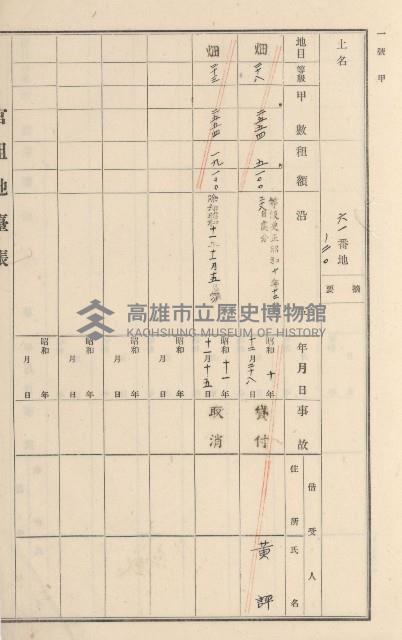 一號甲
土名
六一番地
ノ一〇
摘要
地目 等級 甲數 租額 沿
年月日 事故 借受人
住所 氏名
畑 二十八 二五五四 五一〇〇
等級更正昭和十年十二
昭和十年
十二月二十八日
貸付
黃評
畑 二十三 二五五四 一九一〇〇
昭和十一年
十一月十五日
取消
昭和 年
月 日
昭和 年
月 日
昭和 年
月 日
昭和 年
月 日
官租地臺帳
高雄市立歷史博物館
KAOHSIUNG MUSEUM OF HISTORY